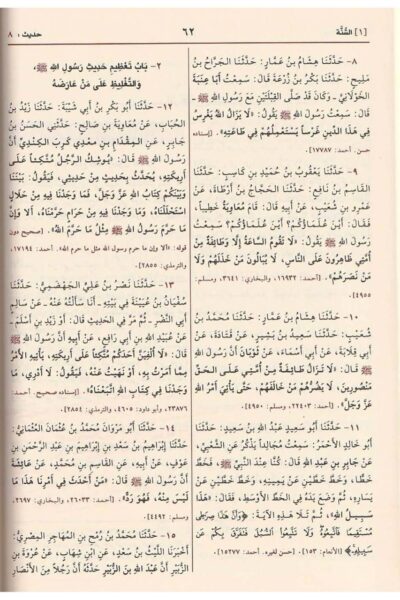 [١] السُّنَّة
٦٢
حديث: ٨
٨- حَدَّثَنَا هِشَامُ بْنُ عَمَّارٍ: حَدَّثَنَا الجَرَّاحُ بْنُ
مَلِيحٍ: حَدَّثَنَا بَكْرُ بْنُ زُرْعَةَ قَالَ: سَمِعْتُ أَبَا عِنَبَةَ
الخَوْلَانِيَّ - وَكَانَ قَدْ صَلَّى القِبْلَتَيْنِ مَعَ رَسُولِ اللهِ ﷺ -
قَالَ: سَمِعْتُ رَسُولَ اللهِ ﷺ يَقُولُ: «لَا يَزَالُ اللهُ يَغْرِسُ
فِي هَذَا الدِّينِ غَرْساً يَسْتَعْمِلُهُمْ فِي طَاعَتِهِ». [إسناده
حسن. أحمد: ١٧٧٨٧].
٩- حَدَّثَنَا يَعْقُوبُ بْنُ حُمَيْدِ بْنِ كَاسِبٍ: حَدَّثَنَا
القَاسِمُ بْنُ نَافِعٍ: حَدَّثَنَا الحَجَّاجُ بْنُ أَرْطَاةَ، عَنْ
عَمْرِو بْنِ شُعَيْبٍ، عَنْ أَبِيهِ قَالَ: قَامَ مُعَاوِيَةُ خَطِيباً،
فَقَالَ: أَيْنَ عُلَمَاؤُكُمْ؟ أَيْنَ عُلَمَاؤُكُمْ؟ سَمِعْتُ
رَسُولَ اللهِ ﷺ يَقُولُ: «لَا تَقُومُ السَّاعَةُ إِلَّا وَطَائِفَةٌ مِنْ
أُمَّتِي ظَاهِرُونَ عَلَى النَّاسِ، لَا يُبَالُونَ مَنْ خَذَلَهُمْ وَلَا
مَنْ نَصَرَهُمْ». [أحمد: ١٦٩٣٢، والبخاري: ٣٦٤١، ومسلم:
٤٩٥٥].
١٠- حَدَّثَنَا هِشَامُ بْنُ عَمَّارٍ: حَدَّثَنَا مُحَمَّدُ بْنُ
شُعَيْبٍ: حَدَّثَنَا سَعِيدُ بْنُ بَشِيرٍ، عَنْ قَتَادَةَ، عَنْ
أَبِي قِلَابَةَ، عَنْ أَبِي أَسْمَاءَ، عَنْ ثَوْبَانَ أَنَّ رَسُولَ
اللهِ ﷺ قَالَ: «لَا تَزَالُ طَائِفَةٌ مِنْ أُمَّتِي عَلَى الحَقِّ
مَنْصُورِينَ، لَا يَضُرُّهُمْ مَنْ خَالَفَهُمْ، حَتَّى يَأْتِيَ أَمْرُ اللهِ
عَزَّ وَجَلَّ». [أحمد: ٢٢٤٠٣، ومسلم: ٤٩٥٠].
١١- حَدَّثَنَا أَبُو سَعِيدٍ عَبْدُ اللهِ بْنُ سَعِيدٍ: حَدَّثَنَا
أَبُو خَالِدٍ الأَحْمَرُ: سَمِعْتُ مُجَالِداً يَذْكُرُ عَنِ الشَّعْبِيِّ،
عَنْ جَابِرِ بْنِ عَبْدِ اللهِ قَالَ: كُنَّا عِنْدَ النَّبِيِّ ﷺ، فَخَطَّ
خَطًّا، وَخَطَّ خَطَّيْنِ عَنْ يَمِينِهِ، وَخَطَّ خَطَّيْنِ عَنْ
يَسَارِهِ، ثُمَّ وَضَعَ يَدَهُ فِي الخَطِّ الأَوْسَطِ، فَقَالَ: «هَذَا
سَبِيلُ اللهِ»، ثُمَّ تَلَا هَذِهِ الآيَةَ: ﴿وَأَنَّ هَذَا صِرَاطِي
مُسْتَقِيمًا فَاتَّبِعُوهُ وَلَا تَتَّبِعُوا السُّبُلَ فَتَفَرَّقَ بِكُمْ عَنْ
سَبِيلِهِ﴾ [الأنعام: ١٥٣]. [حسن لغيره. أحمد: ١٥٢٧٧].
٢- بَابُ تَعْظِيمِ حَدِيثِ رَسُولِ اللهِ ﷺ،
وَالتَّغْلِيظِ عَلَى مَنْ عَارَضَهُ
١٢- حَدَّثَنَا أَبُو بَكْرِ بْنُ أَبِي شَيْبَةَ: حَدَّثَنَا زَيْدُ بْنُ
الحُبَابِ، عَنْ مُعَاوِيَةَ بْنِ صَالِحٍ: حَدَّثَنِي الحَسَنُ بْنُ
جَابِرٍ، عَنِ المِقْدَامِ بْنِ مَعْدِي كَرِبَ الكِنْدِيِّ أَنَّ
رَسُولَ اللهِ ﷺ قَالَ: «يُوشِكُ الرَّجُلُ مُتَّكِئاً عَلَى
أَرِيكَتِهِ، يُحَدَّثُ بِحَدِيثٍ مِنْ حَدِيثِي، فَيَقُولُ: بَيْنَنَا
وَبَيْنَكُمْ كِتَابُ اللهِ عَزَّ وَجَلَّ، فَمَا وَجَدْنَا فِيهِ مِنْ حَلَالٍ
اسْتَحْلَلْنَاهُ، وَمَا وَجَدْنَا فِيهِ مِنْ حَرَامٍ حَرَّمْنَاهُ، أَلَا وَإِنَّ
مَا حَرَّمَ رَسُولُ اللهِ ﷺ مِثْلُ مَا حَرَّمَ اللهُ». [صحيح دون
قوله: «ألا وإن ما حرم رسول الله مثل ما حرم الله». أحمد: ١٧١٩٤،
والترمذي: ٢٨٥٥].
١٣- حَدَّثَنَا نَصْرُ بْنُ عَلِيٍّ الجَهْضَمِيُّ: حَدَّثَنَا
سُفْيَانُ بْنُ عُيَيْنَةَ فِي بَيْتِهِ - أَنَا سَأَلْتُهُ عَنْهُ - عَنْ سَالِمٍ
أَبِي النَّضْرِ - ثُمَّ مَرَّ فِي الحَدِيثِ قَالَ: أَوْ زَيْدِ بْنِ أَسْلَمَ -
عَنْ عُبَيْدِ اللهِ بْنِ أَبِي رَافِعٍ، عَنْ أَبِيهِ أَنَّ رَسُولَ اللهِ ﷺ
قَالَ: «لَا أُلْفِيَنَّ أَحَدَكُمْ مُتَّكِئاً عَلَى أَرِيكَتِهِ، يَأْتِيهِ الأَمْرُ
مِمَّا أَمَرْتُ بِهِ، أَوْ نَهَيْتُ عَنْهُ، فَيَقُولُ: لَا أَدْرِي، مَا
وَجَدْنَا فِي كِتَابِ اللهِ اتَّبَعْنَاهُ». [إسناده صحيح. أحمد:
٢٣٨٧٦، وأبو داود: ٤٦٠٥، والترمذي: ٢٨٥٤].
١٤- حَدَّثَنَا أَبُو مَرْوَانَ مُحَمَّدُ بْنُ عُثْمَانَ العُثْمَانِيُّ:
حَدَّثَنَا إِبْرَاهِيمُ بْنُ سَعْدِ بْنِ إِبْرَاهِيمَ بْنِ عَبْدِ الرَّحْمَنِ بْنِ
عَوْفٍ، عَنْ أَبِيهِ، عَنِ القَاسِمِ بْنِ مُحَمَّدٍ، عَنْ عَائِشَةَ
أَنَّ رَسُولَ اللهِ ﷺ قَالَ: «مَنْ أَحْدَثَ فِي أَمْرِنَا هَذَا مَا
لَيْسَ مِنْهُ، فَهُوَ رَدٌّ». [أحمد: ٢٦٠٣٣، والبخاري: ٢٦٩٧،
ومسلم: ٤٤٩٢].
١٥- حَدَّثَنَا مُحَمَّدُ بْنُ رُمْحِ بْنِ المُهَاجِرِ المِصْرِيُّ:
أَخْبَرَنَا اللَّيْثُ بْنُ سَعْدٍ، عَنِ ابْنِ شِهَابٍ، عَنْ عُرْوَةَ بْنِ
الزُّبَيْرِ أَنَّ عَبْدَ اللهِ بْنَ الزُّبَيْرِ حَدَّثَهُ أَنَّ رَجُلاً مِنَ الأَنْصَارِ